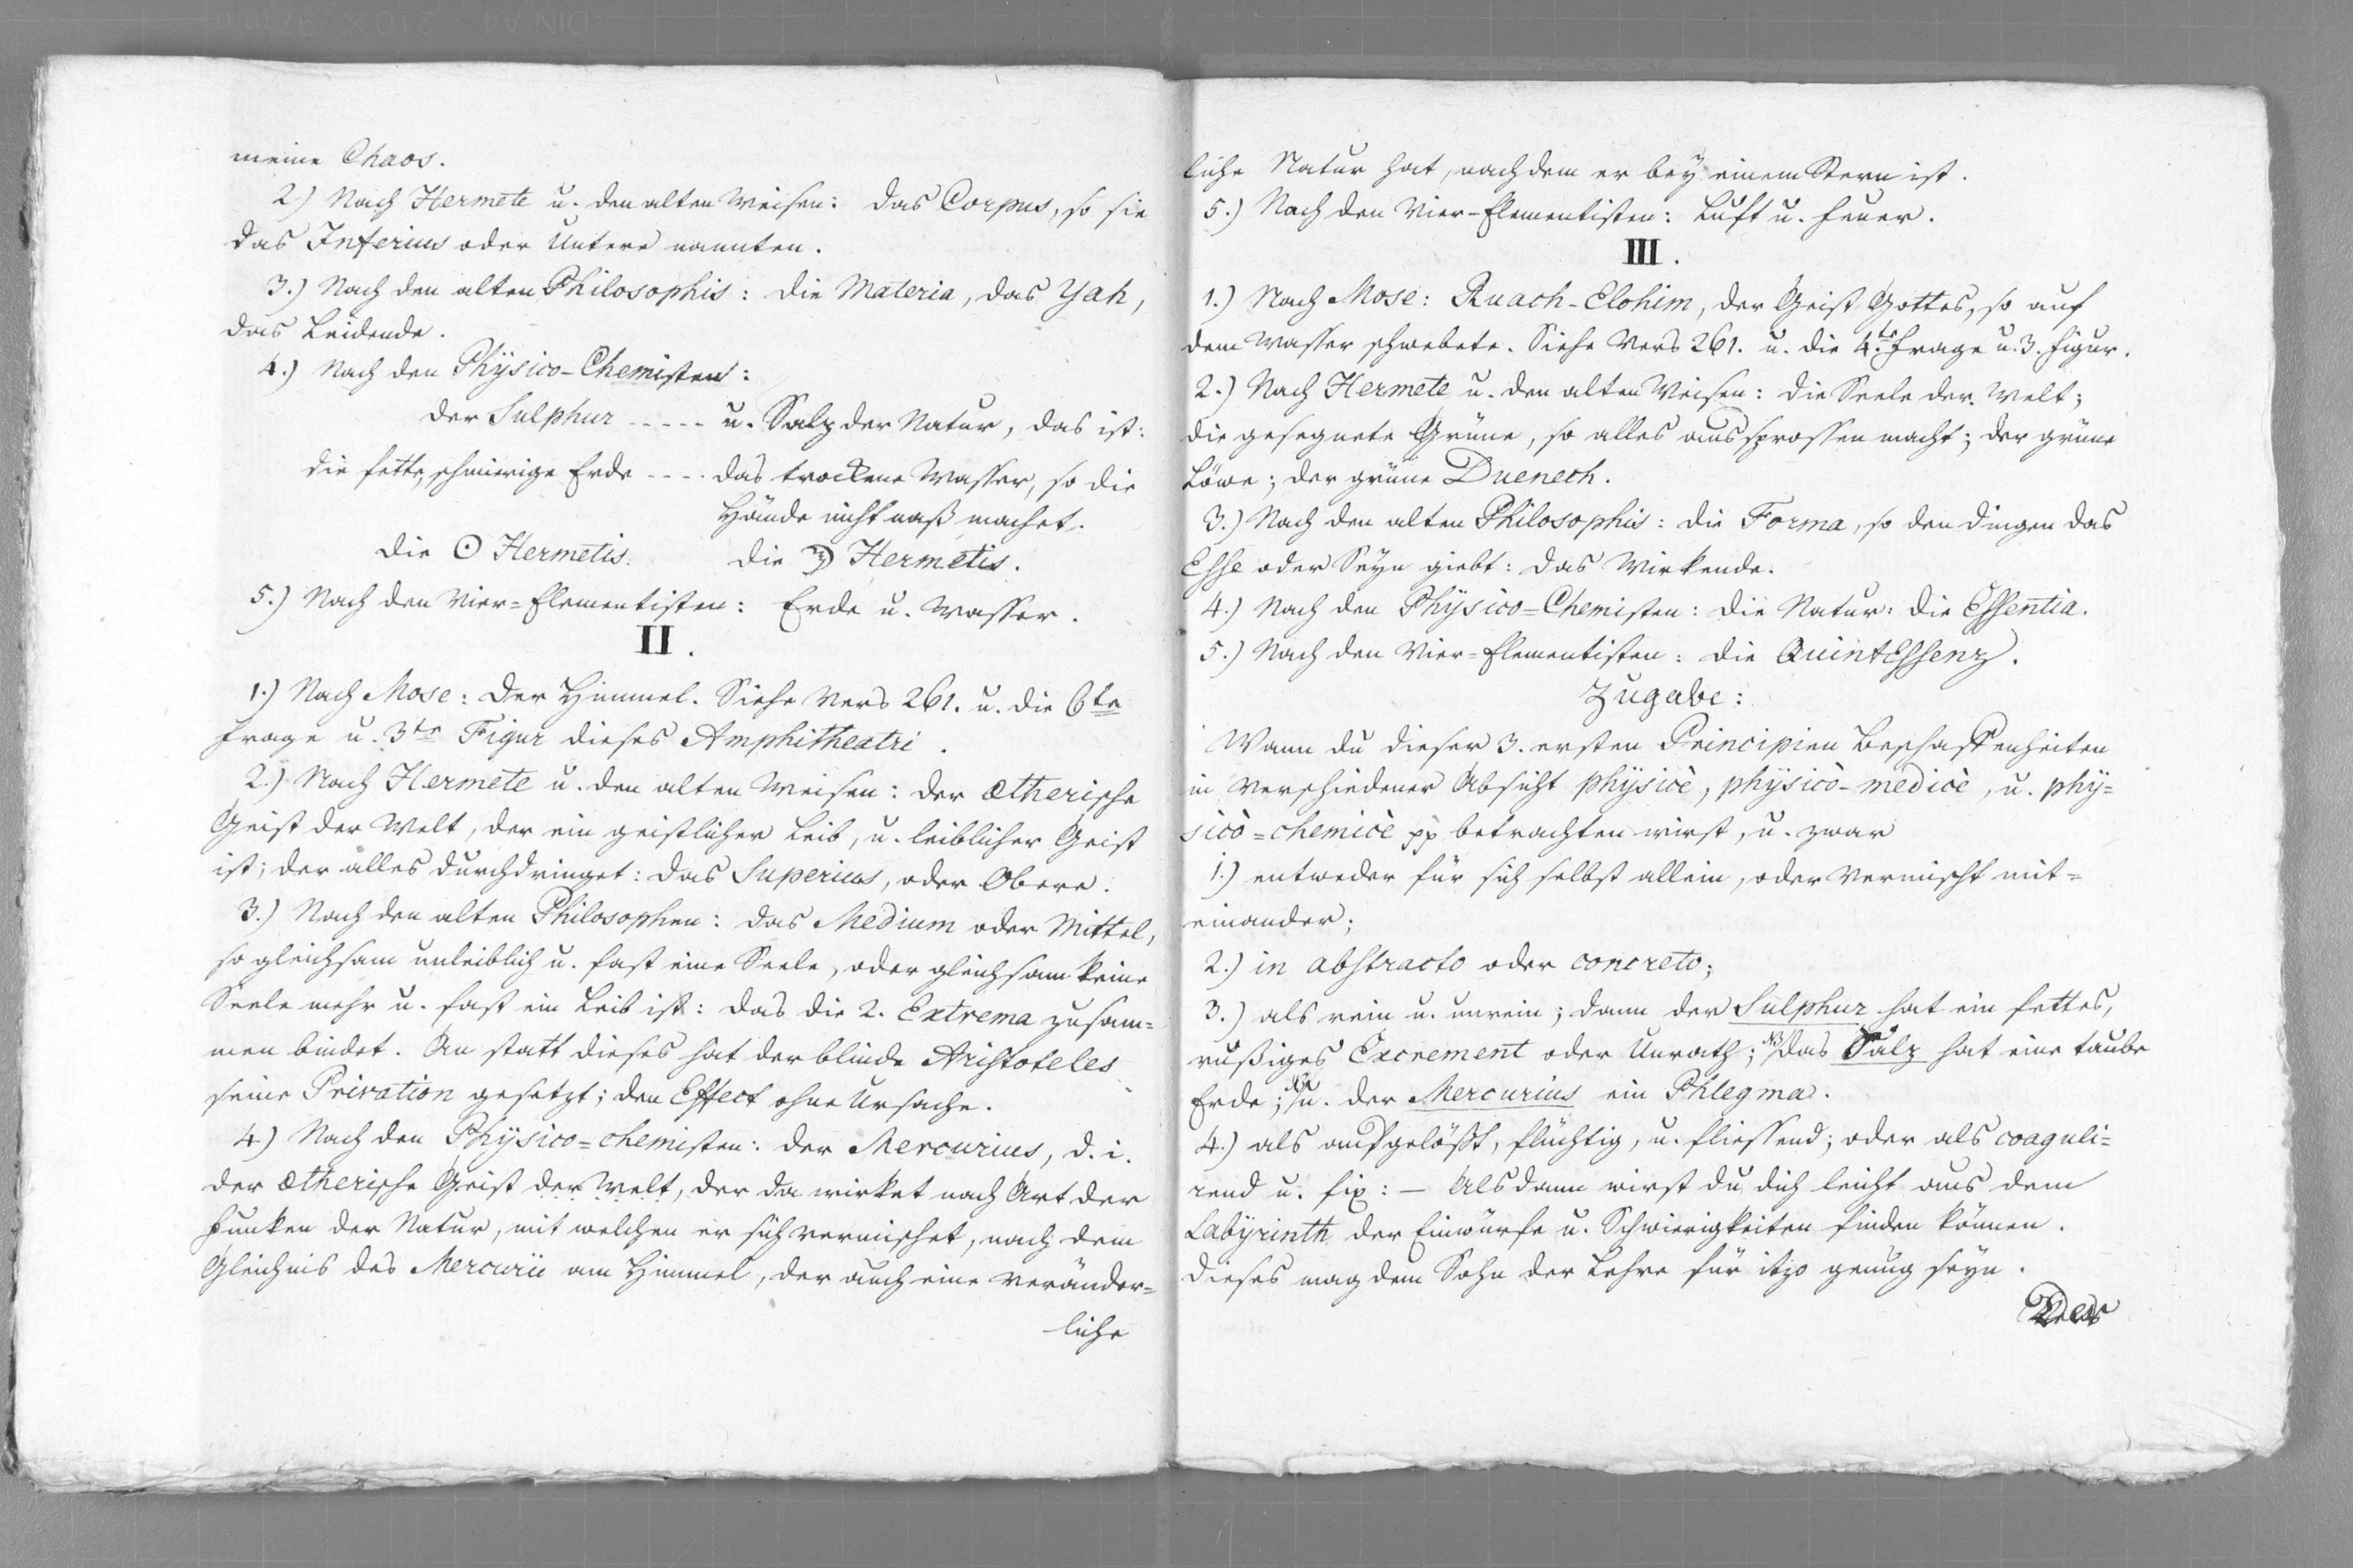 meine Chaos.
2.) Nach Hermete u. den alten Weisen: das Corpus, so sie
das Inferius oder Untere nannten.
3.) Nach den alten Philosophis: die Materia, das Yah,
das Leidende.
4.) Nach den Physico-Chemisten:
der Sulphur ----- u. Salz der Natur, das ist:
die fette, schmierige Erde ---- das trockene Wasser, so die
Hände nicht naß machet.
die ☉ Hermetis. die ☽ Hermetis.
5.) Nach den Vier=Elementisten: Erde u. Wasser.
II.
1.) Nach Mose: Der Himmel. Siehe Vers 261. u. die 6te
Frage u. 3te Figur dieses Amphitheatri.
2.) Nach Hermete u. den alten Weisen: der ætherische
Geist der Welt, der ein geistlicher Leib, u. leiblicher Geist
ist; der alles durchdringet: das Superius, oder Obere.
3.) Nach den alten Philosophen: das Medium oder Mittel,
so gleichsam unleiblich u. fast eine Seele, oder gleichsam keine
Seele mehr u. fast ein Leib ist: das die 2. Extrema zusam=
men bindet. An statt dieses hat der blinde Aristoteles
seine Privation gesetzt; den Effect ohne Ursache.
4) Nach den Physico=chemisten: der Mercurius, d. i.
der ætherische Geist der Welt, der da wirket nach Art der
Funken der Natur, mit welchen er sich vermischet, nach dem
Gleichnis des Mercurii am Himmel, der auch eine veränder=
liche
liche Natur hat, nachdem er bey einem Stern ist.
5.) Nach den Vier-Elementisten: Luft u. Feuer.
III.
1.) Nach Mose: Ruach-Elohim, der Geist Gottes, so auf
dem Wasser schwebete. Siehe Vers 261. u. die 4.te Frage u. 3. Figur.
2.) Nach Hermete u. den alten Weisen: die Seele der Welt;
die gesegnete Grüne, so alles aussprossen macht; der grüne
Löwe; der grüne Duenech.
3.) Nach den alten Philosophis: die Forma, so den Dingen das
Esse oder Seyn giebt: das Wirkende.
4.) Nach den Physico=Chemisten: die Natur: die Essentia.
5.) Nach den Vier=Elementisten: die QuintEssenz.
Zugabe:
Wann du dieser 3. ersten Principien Beschaffenheiten
in verschiedener Absicht physicè, physicò-medicè, u. phy=
sicò=chemicè pp betrachten wirst, u. zwar
1.) entweder für sich selbst allein, oder vermischt mit=
einander;
2.) in abstracto oder concreto;
3.) als rein u. unrein; dann der Sulphur hat ein fettes,
rußiges Excrement oder Unrath; das Salz hat eine taube
Erde; u. der Mercurius ein Phlegma.
4.) als aufgelößt, flüchtig, u. fliessend; oder als coaguli=
rend u. fix: – Alsdann wirst du dich leicht aus dem
Labyrinth der Einwürfe u. Schwierigkeiten finden können.
Dieses mag dem Sohn der Lehre für itzo genug seyn.